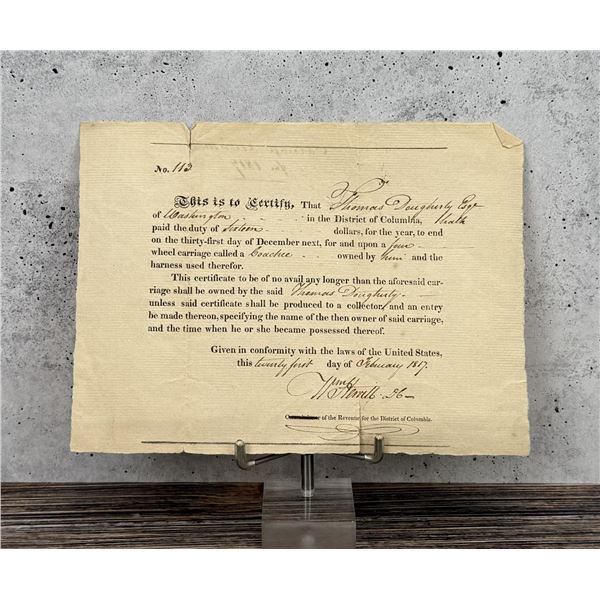 No. 113
This is to Certify, That Thomas Dougherty Esqr
of Washington in the District of Columbia, hath
paid the duty of Sixteen dollars, for the year, to end
on the thirty-first day of December next, for and upon a four
wheel carriage called a Coachee owned by him and the
harness used therefor.
This certificate to be of no avail any longer than the aforesaid car-
riage shall be owned by the said Thomas Dougherty
unless said certificate shall be produced to a collector, and an entry
be made thereon, specifying the name of the then owner of said carriage,
and the time when he or she became possessed thereof.
Given in conformity with the laws of the United States,
this twenty first day of February 1817.
Wm
of the Revenue for the District of Columbia.